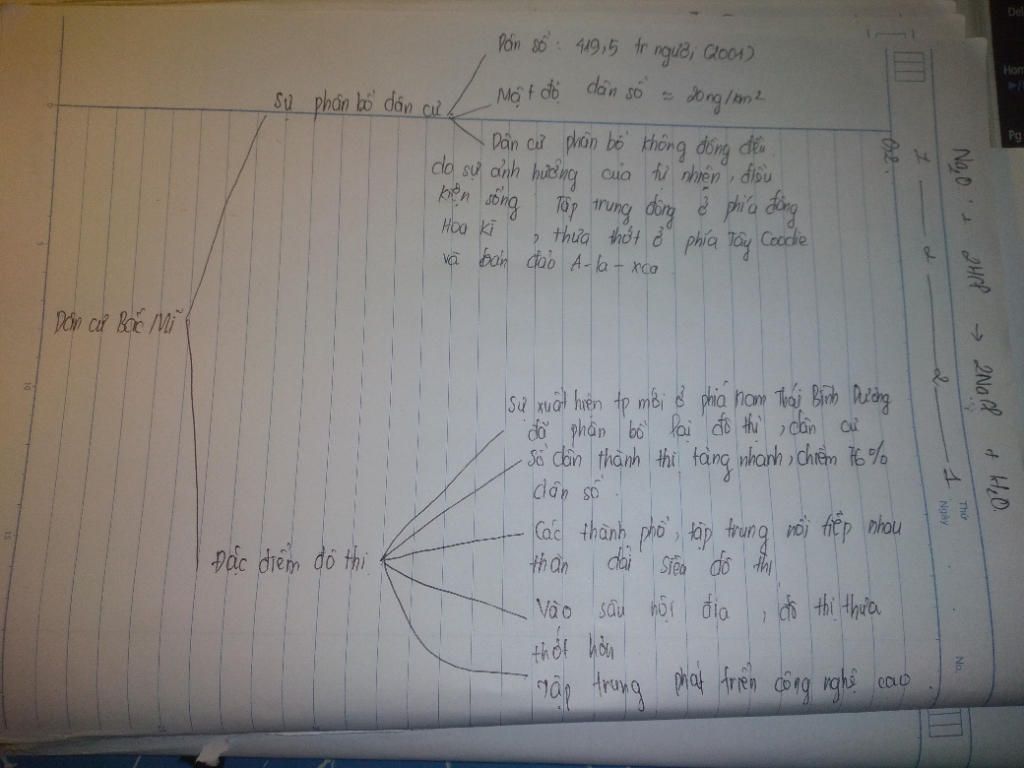 Dân số : 419,5 tr người (2001)
Sự phân bố dân cư
Mật độ dân số ≈ 20ng/km²
Dân cư phân bố không đồng đều
do sự ảnh hưởng của tự nhiên, điều
kiện sống. Tập trung đông ở phía đông
Hoa Kì , thưa thớt ở phía Tây Coocdie
và bán đảo A-la-xca
Dân cư Bắc Mĩ
Sự xuất hiện tp mới ở phía nam Thái Bình Dương
đã phân bố lại đô thị, dân cư
Số dân thành thị tăng nhanh, chiếm 76%
dân số.
Các thành phố, tập trung nối tiếp nhau
thần dải siêu đô thị
Đặc điểm đô thị
Vào sâu nội địa , đô thị thưa
thớt hơn
Tập trung phát triển công nghệ cao.
Na₂O + 2HCl → 2NaCl + H₂O
1 — 2 — 2 — 1
0,2
Thứ
Ngày
No.